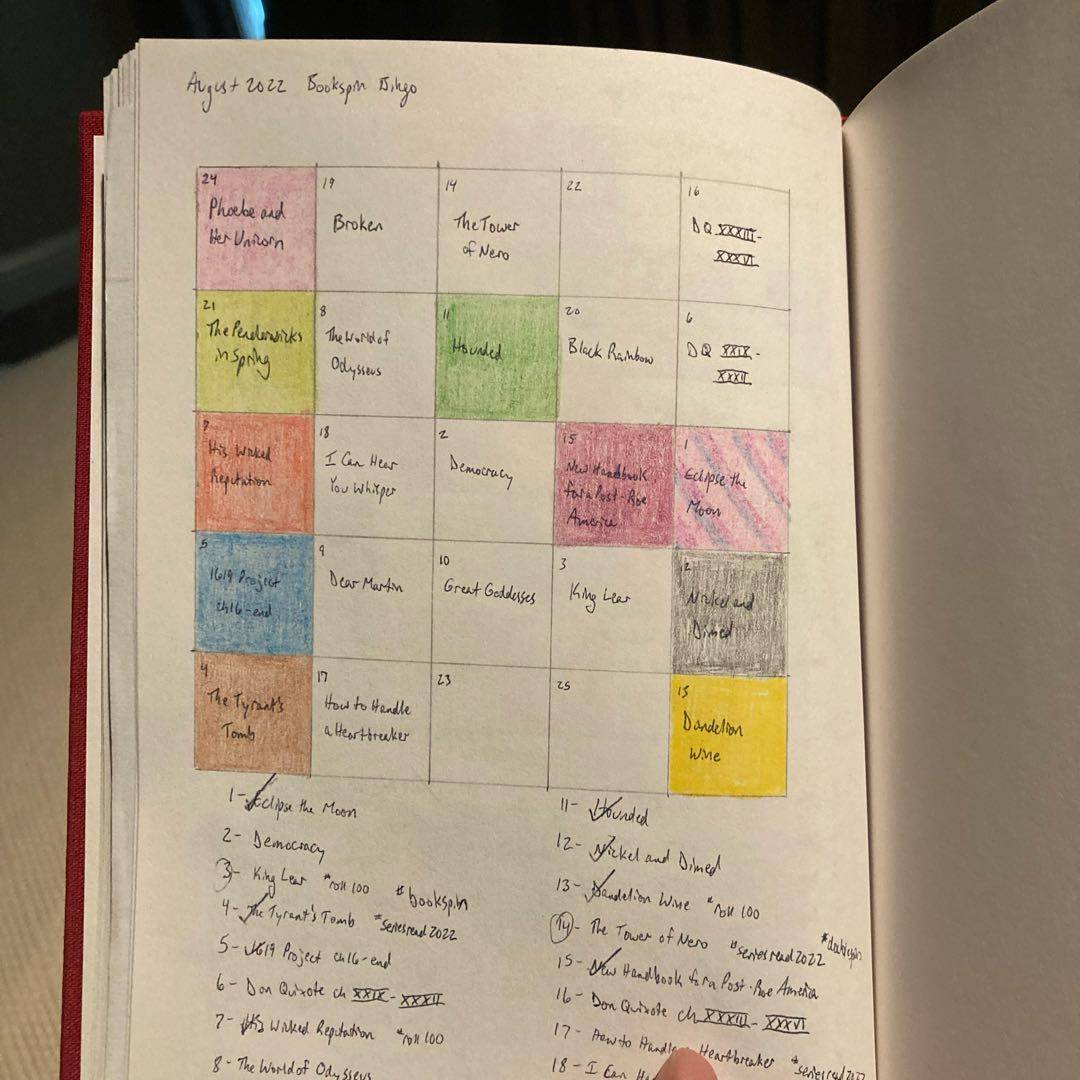 August 2022 Bookspin Bingo
24
Phoebe and
Her Unicorn
19
Broken
14
The Tower
of Nero
22
16
DQ XXXIII-
XXXVI
21
The Penderwicks
in Spring
8
The World of
Odysseus
11
Hounded
20
Black Rainbow
6
DQ XXIX-
XXXII
7
His Wicked
Reputation
18
I Can Hear
You Whisper
2
Democracy
15
New Handbook
for a Post-Roe
America
1
Eclipse the
Moon
5
1619 Project
ch16-end
9
Dear Martin
10
Great Goddesses
3
King Lear
12
Nickel and
Dimed
4
The Tyrant's
Tomb
17
How to Handle
a Heartbreaker
23
25
13
Dandelion
Wine
1- Eclipse the Moon
2- Democracy
3- King Lear #roll100 #bookspin
4- The Tyrant's Tomb #seriesread2022
5- 1619 Project ch16-end
6- Don Quixote ch XXIX-XXXII
7- His Wicked Reputation #roll100
8- The World of Odysseus
11- Hounded
12- Nickel and Dimed
13- Dandelion Wine #roll100
14- The Tower of Nero #seriesread2022 #doublespin
15- New Handbook for a Post-Roe America
16- Don Quixote ch XXXIII-XXXVI
17- How to Handle Heartbreaker #seriesread2022
18- I Can